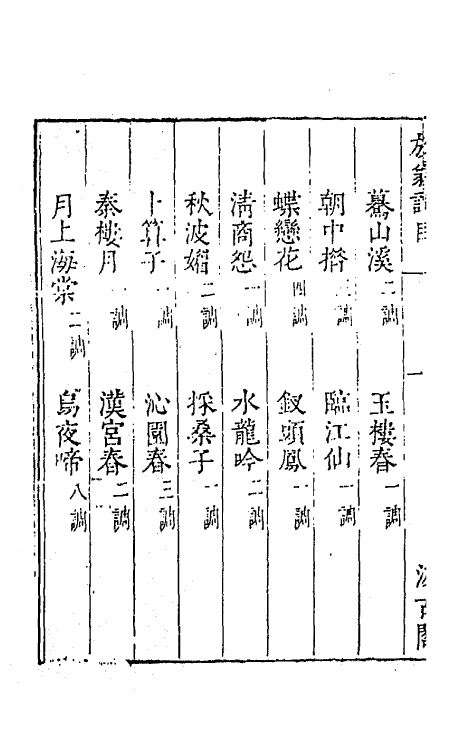 放翁詞目 一 汲古閣
驀山溪二調 玉樓春一調
朝中措三調 臨江仙一調
蝶戀花四調 釵頭鳳一調
清商怨一調 水龍吟二調
秋波媚二調 採桑子一調
卜算子一調 沁園春三調
秦樓月一調 漢宮春二調
月上海棠二調 烏夜啼八調